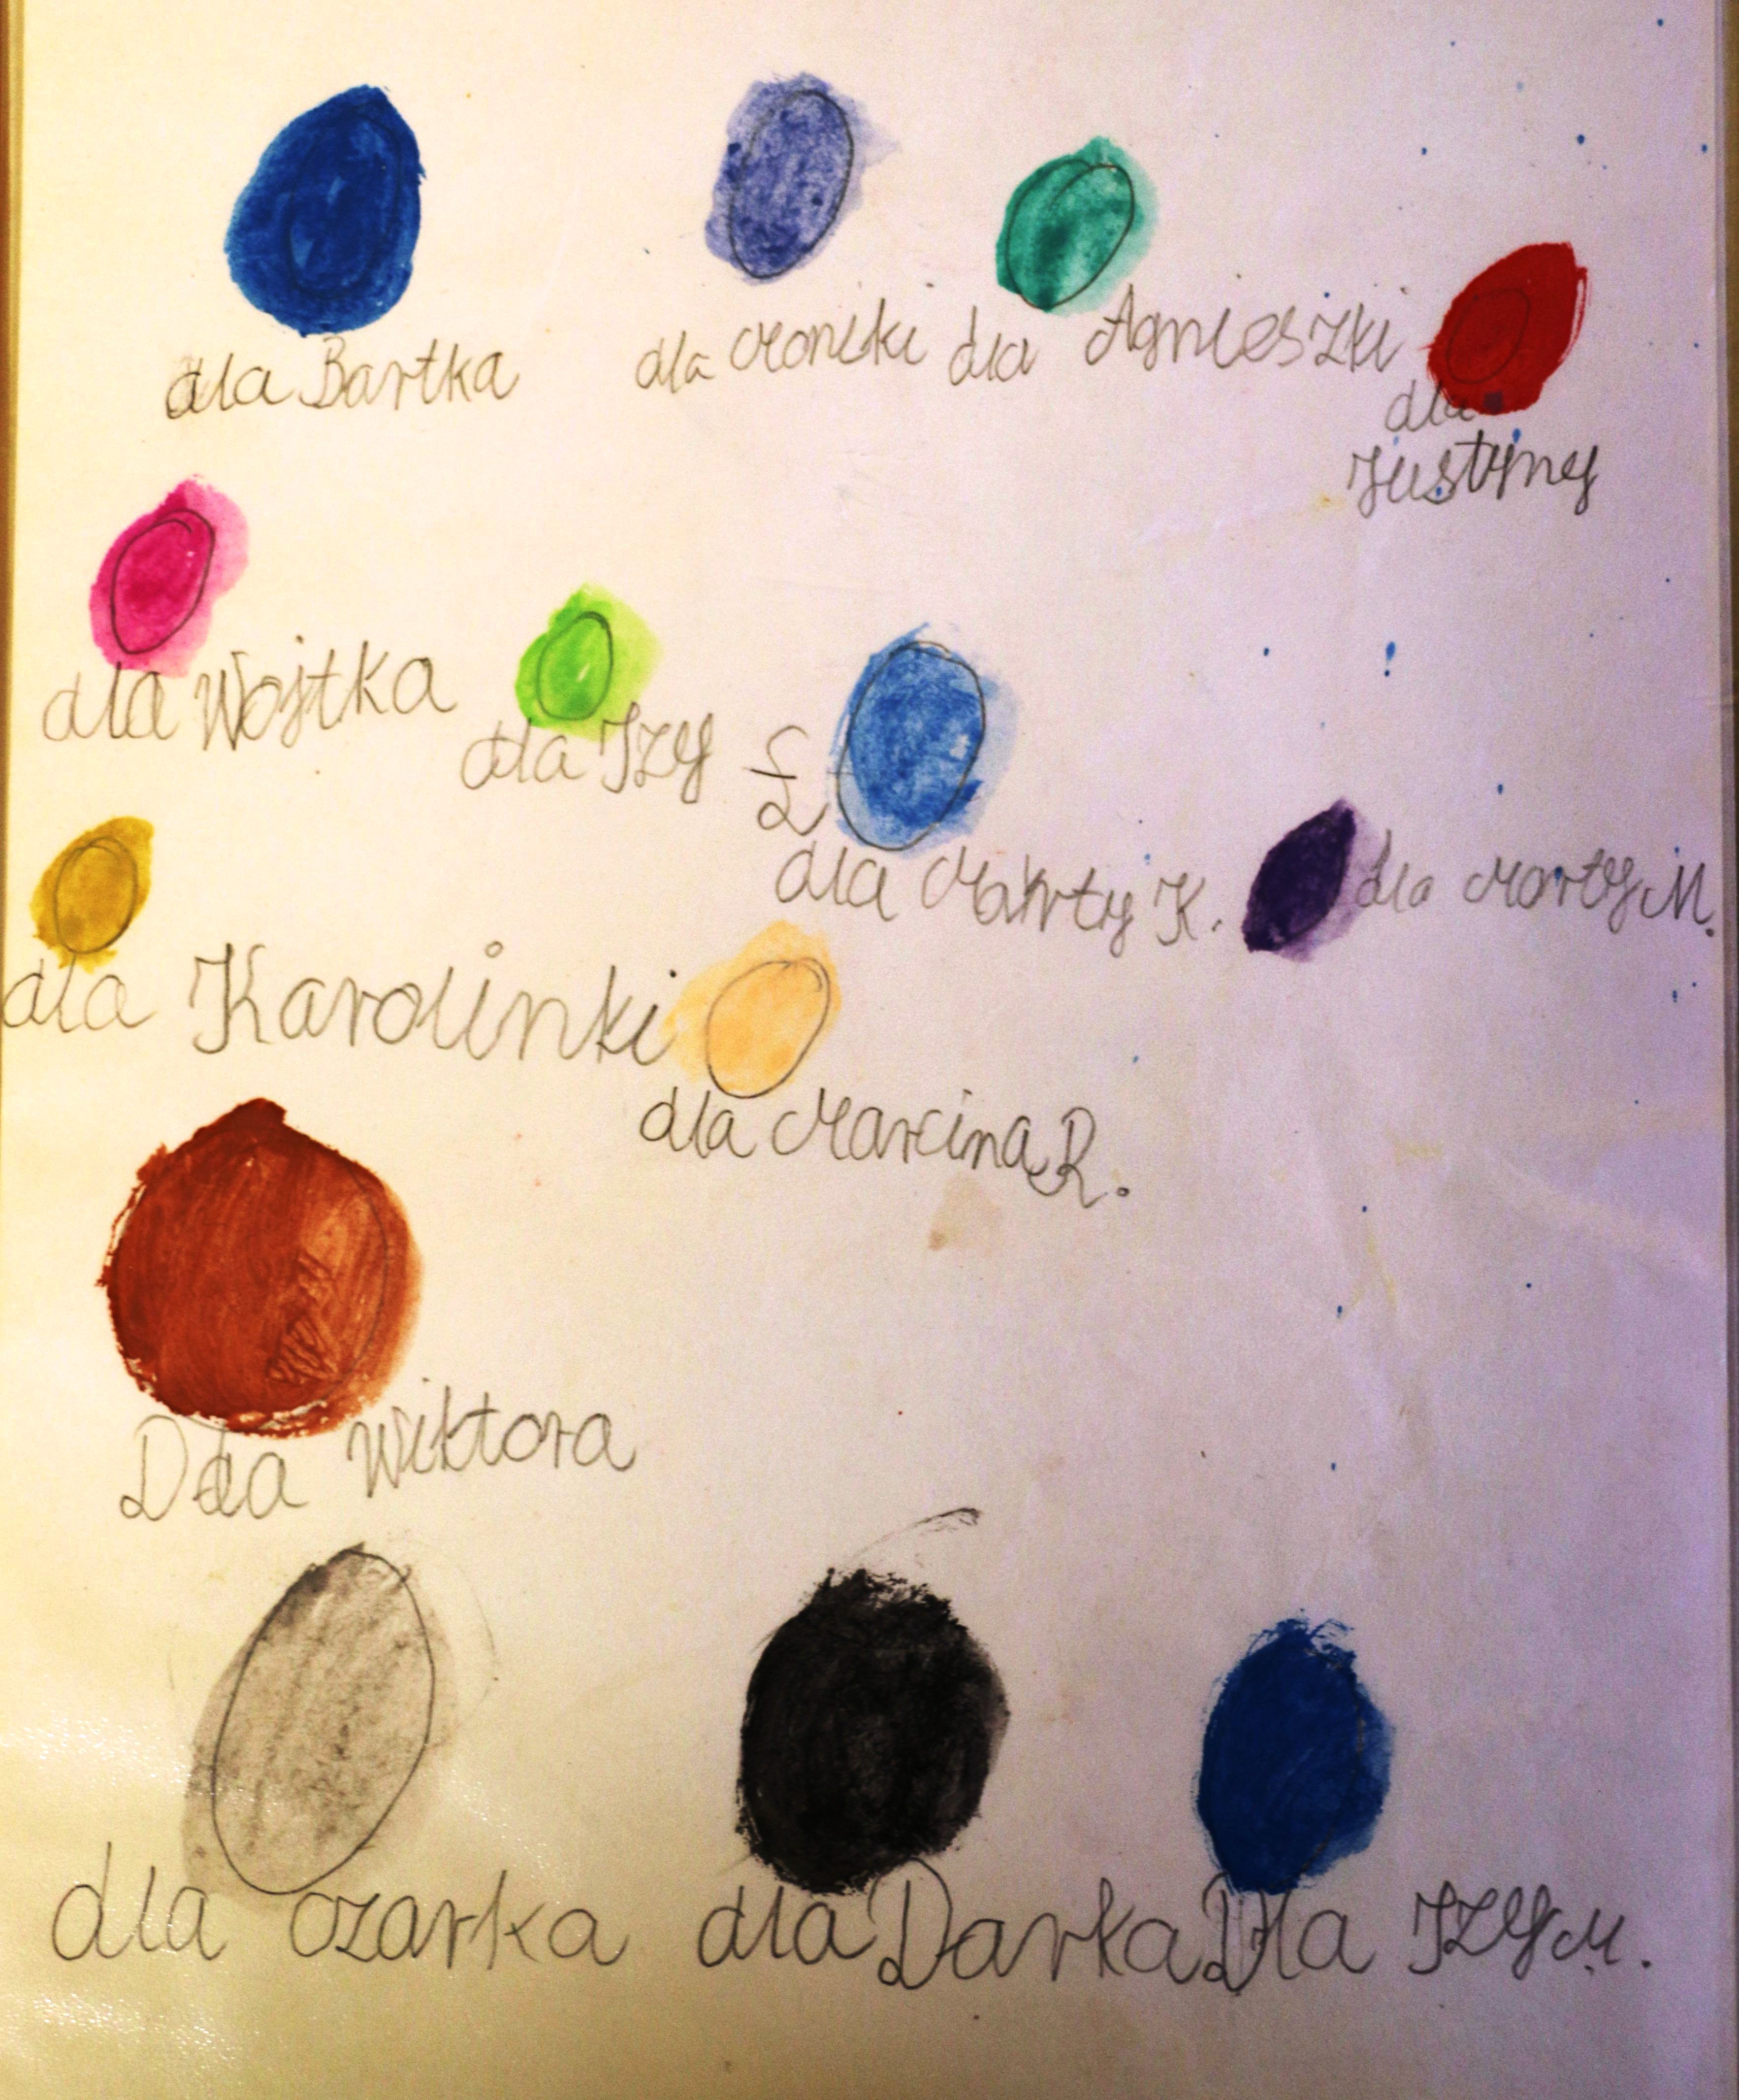 dla Bartka
dla Moniki
dla Agnieszki
dla
Justyny
dla Wojtka
dla Izy
Ł
dla Marty K.
dla Marty M.
dla Karolinki
dla Marcina R.
Dla Wiktora
dla czarka
dla Darka
Dla Izy M.